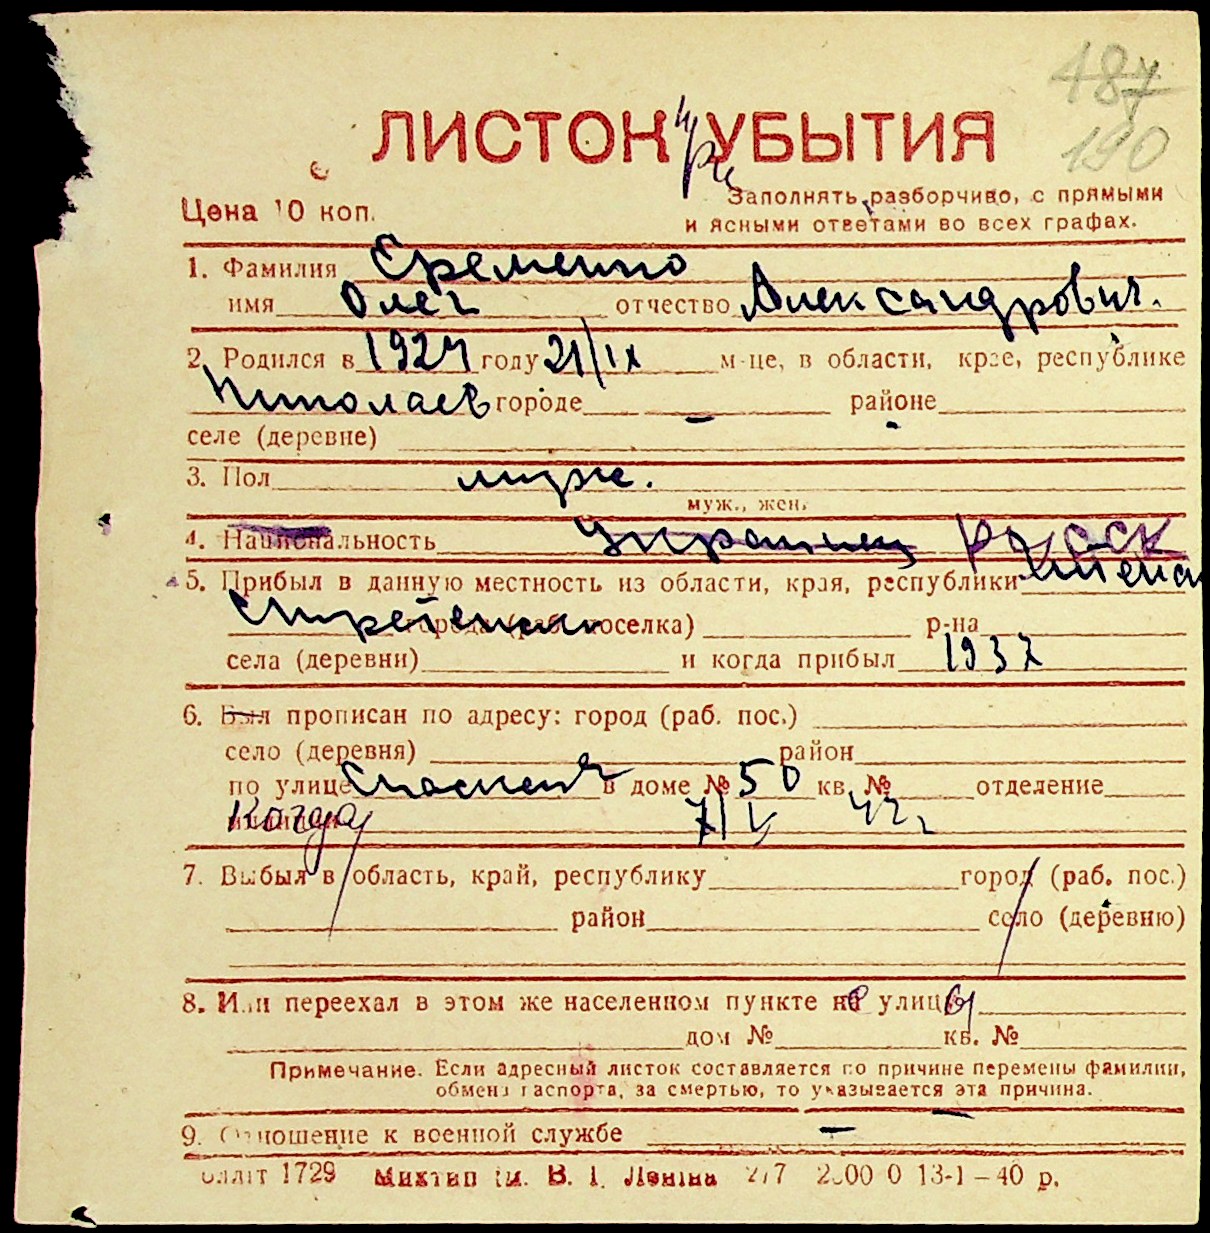 487
190
ЛИСТОК УБЫТИЯ
Цена 10 коп.
Заполнять разборчиво, с прямыми
и ясными ответами во всех графах.
1. Фамилия Еременко
имя Олег отчество Александрович.
2. Родился в 1924 году 21/IX м-це, в области, крае, республике
Николаев городе — районе
селе (деревне)
3. Пол муж.
муж., жен.
4. Национальность украинец русск
5. Прибыл в данную местность из области, края, республики
города (раб. поселка) р-на
села (деревни) и когда прибыл 1937
6. Был прописан по адресу: город (раб. пос.)
село (деревня) район
по улице Спасская в доме № 50 кв. № отделение
Когда 7/V 42г.
7. Выбыл в область, край, республику город (раб. пос.)
район село (деревню)
8. Или переехал в этом же населенном пункте не улицы
дом № кв. №
Примечание. Если адресный листок составляется по причине перемены фамилии,
обмена паспорта, за смертью, то указывается эта причина.
9. Отношение к военной службе —
1729 Миктип ім. В. І. Леніна 277 2000 0 13-1-40 р.